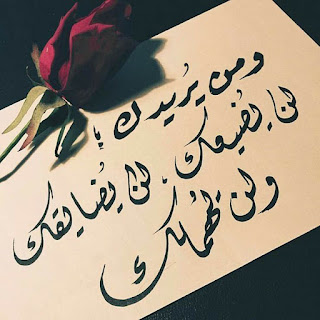 ومن يُريدك ؛
لن يُضيعك ، لن يُضايقك
ولن يُهملك